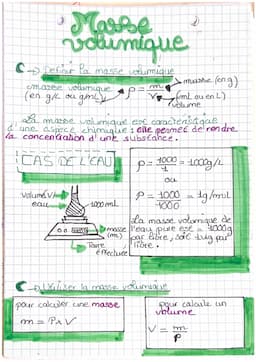 Masse
volumique
Définir la masse volumique
masse volumique
(en g/L ou g/mL)
ρ = m
V
masse (en g)
(mL ou en L)
volume
La masse volumique est caractéristique
d'une espèce chimique : elle permet de rendre
la concentration d'une substance.
CAS DE L'EAU
Volume V
eau
1000 mL
masse
(m)
Tare
effectuée
ρ = 1000 = 1000g/L
1
ou
ρ = 1000 = 1g/mL
1000
La masse volumique de
l'eau pure est = 1000g
par litre, soit 1kg par
litre.
Utiliser la masse volumique
pour calculer une masse
m = ρ x V
pour calculer un
volume
V = m
ρ